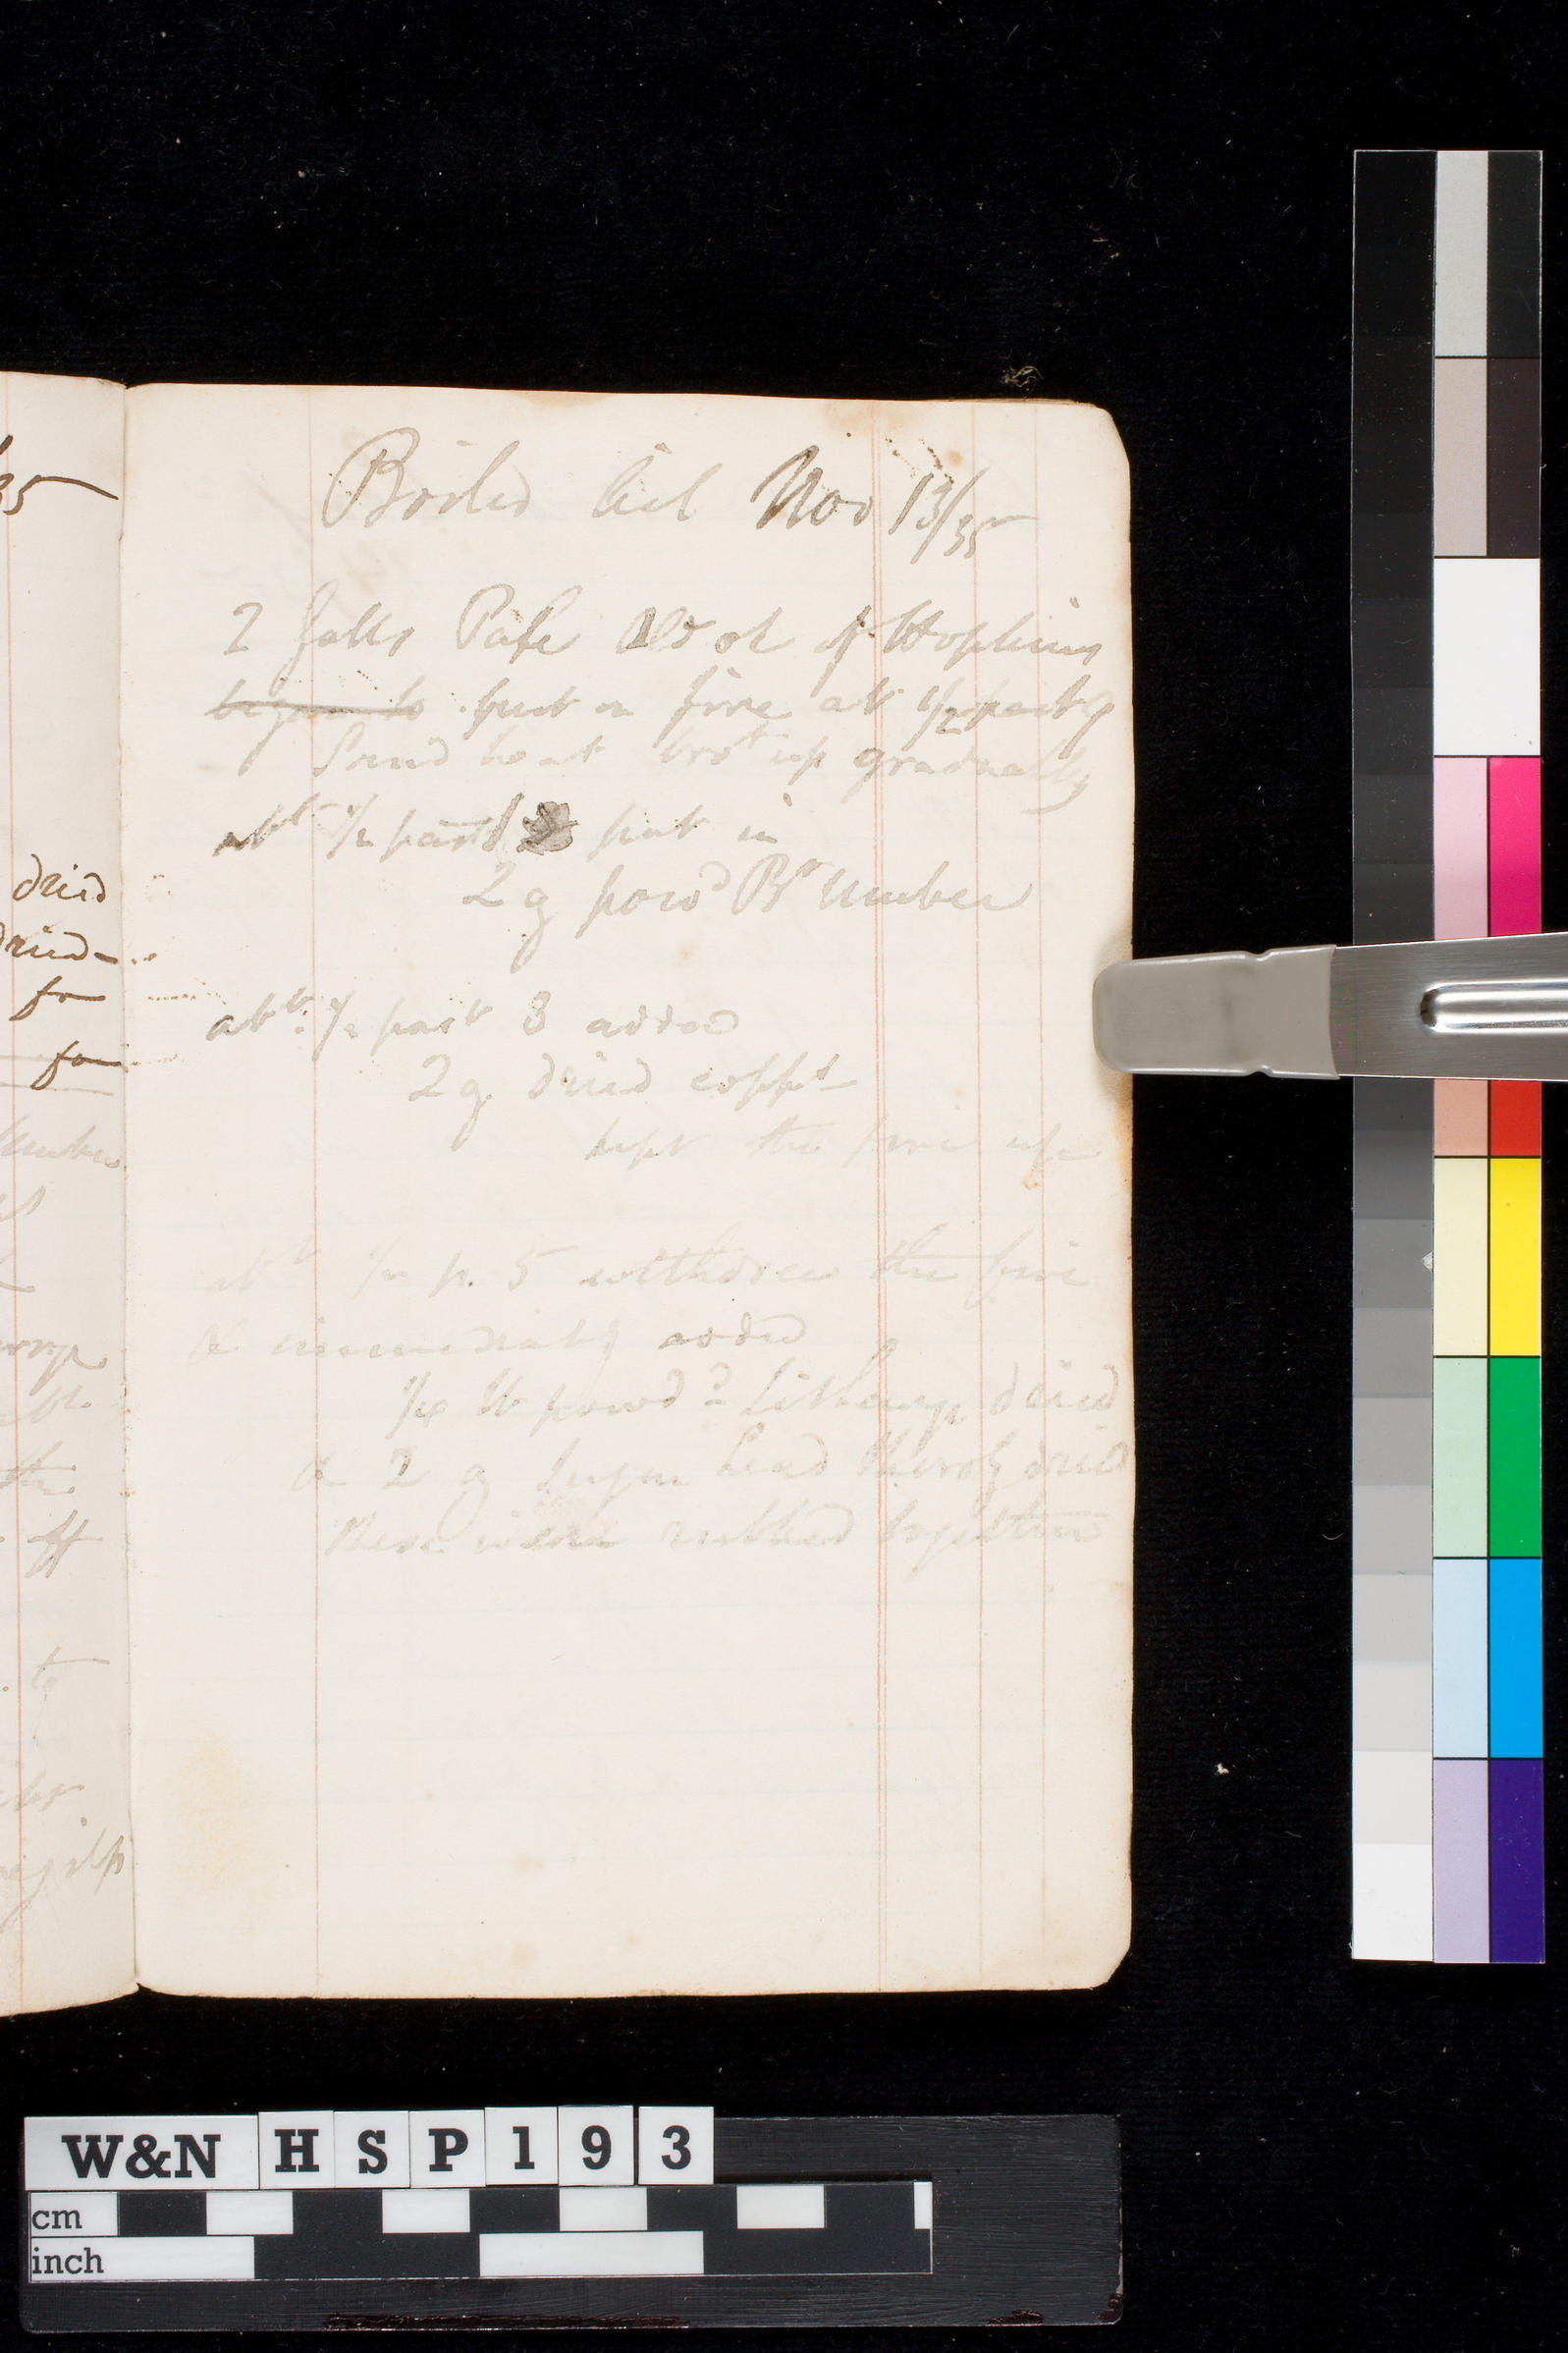 35
dried
dried-
for
for
Umber
the
to
Boiled Oil Nov 13/35
2 galls Pale Old oil of Hopkins
began to put on fire at 1/2 past
Sand heat bro^t up gradually
ab^t 1/2 past put in
2 g powd Br Umber
ab^t. 1/2 past 3 added
2 g dried copp^s
kept the fire up
ab^t 1/2 p. 5 withdrew the fire
& immediately added
lb powd^d Litharge dried
& 2 g Sugar Lead thoro^y dried
these were rubbed together
W&N HSP193
cm
inch